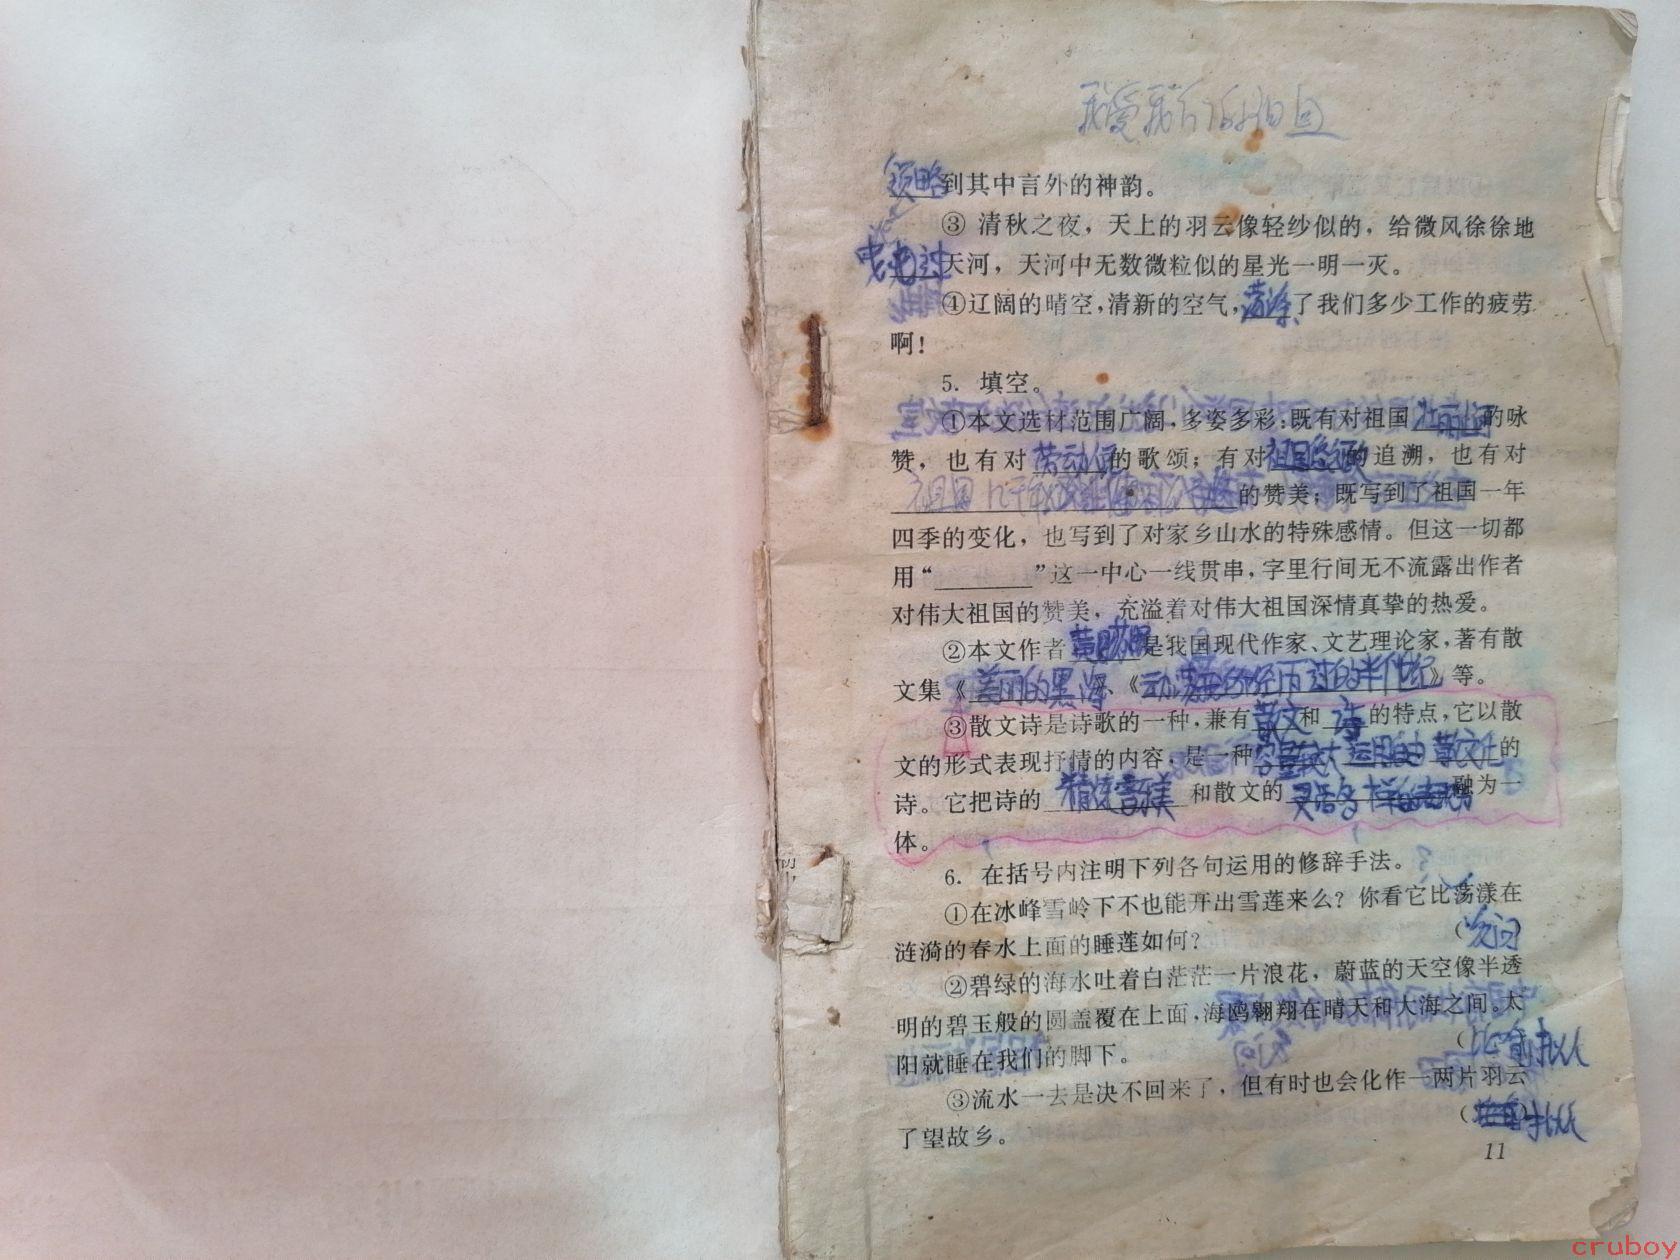 我爱我们的祖国
领略到其中言外的神韵。
③ 清秋之夜，天上的羽云像轻纱似的，给微风徐徐地
天河，天河中无数微粒似的星光一明一灭。
④辽阔的晴空，清新的空气，荡涤了我们多少工作的疲劳
啊！
5. 填空。
①本文选材范围广阔，多姿多彩：既有对祖国 的咏
赞，也有对劳动人民的歌颂；有对祖国 的追溯，也有对
祖国几千年 的赞美；既写到了祖国一年
四季的变化，也写到了对家乡山水的特殊感情。但这一切都
用“________”这一中心一线贯串，字里行间无不流露出作者
对伟大祖国的赞美，充溢着对伟大祖国深情真挚的热爱。
②本文作者黄 是我国现代作家、文艺理论家，著有散
文集《美丽的黑海》、《动荡 的半世纪》等。
③散文诗是诗歌的一种，兼有散文和诗的特点，它以散
文的形式表现抒情的内容，是一种容量较大 运用自由 散文化的
诗。它把诗的精炼 和散文的灵活多样的 融为一
体。
6. 在括号内注明下列各句运用的修辞手法。
①在冰峰雪岭下不也能开出雪莲来么？你看它比荡漾在
涟漪的春水上面的睡莲如何？ （反问）
②碧绿的海水吐着白茫茫一片浪花，蔚蓝的天空像半透
明的碧玉般的圆盖覆在上面，海鸥翱翔在晴天和大海之间。太
阳就睡在我们的脚下。 （比喻拟人
③流水一去是决不回来了，但有时也会化作一两片羽云
了望故乡。 （ ）拟人
11
cruboy